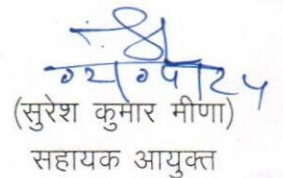 (सुरेश कुमार मीणा)
सहायक आयुक्त